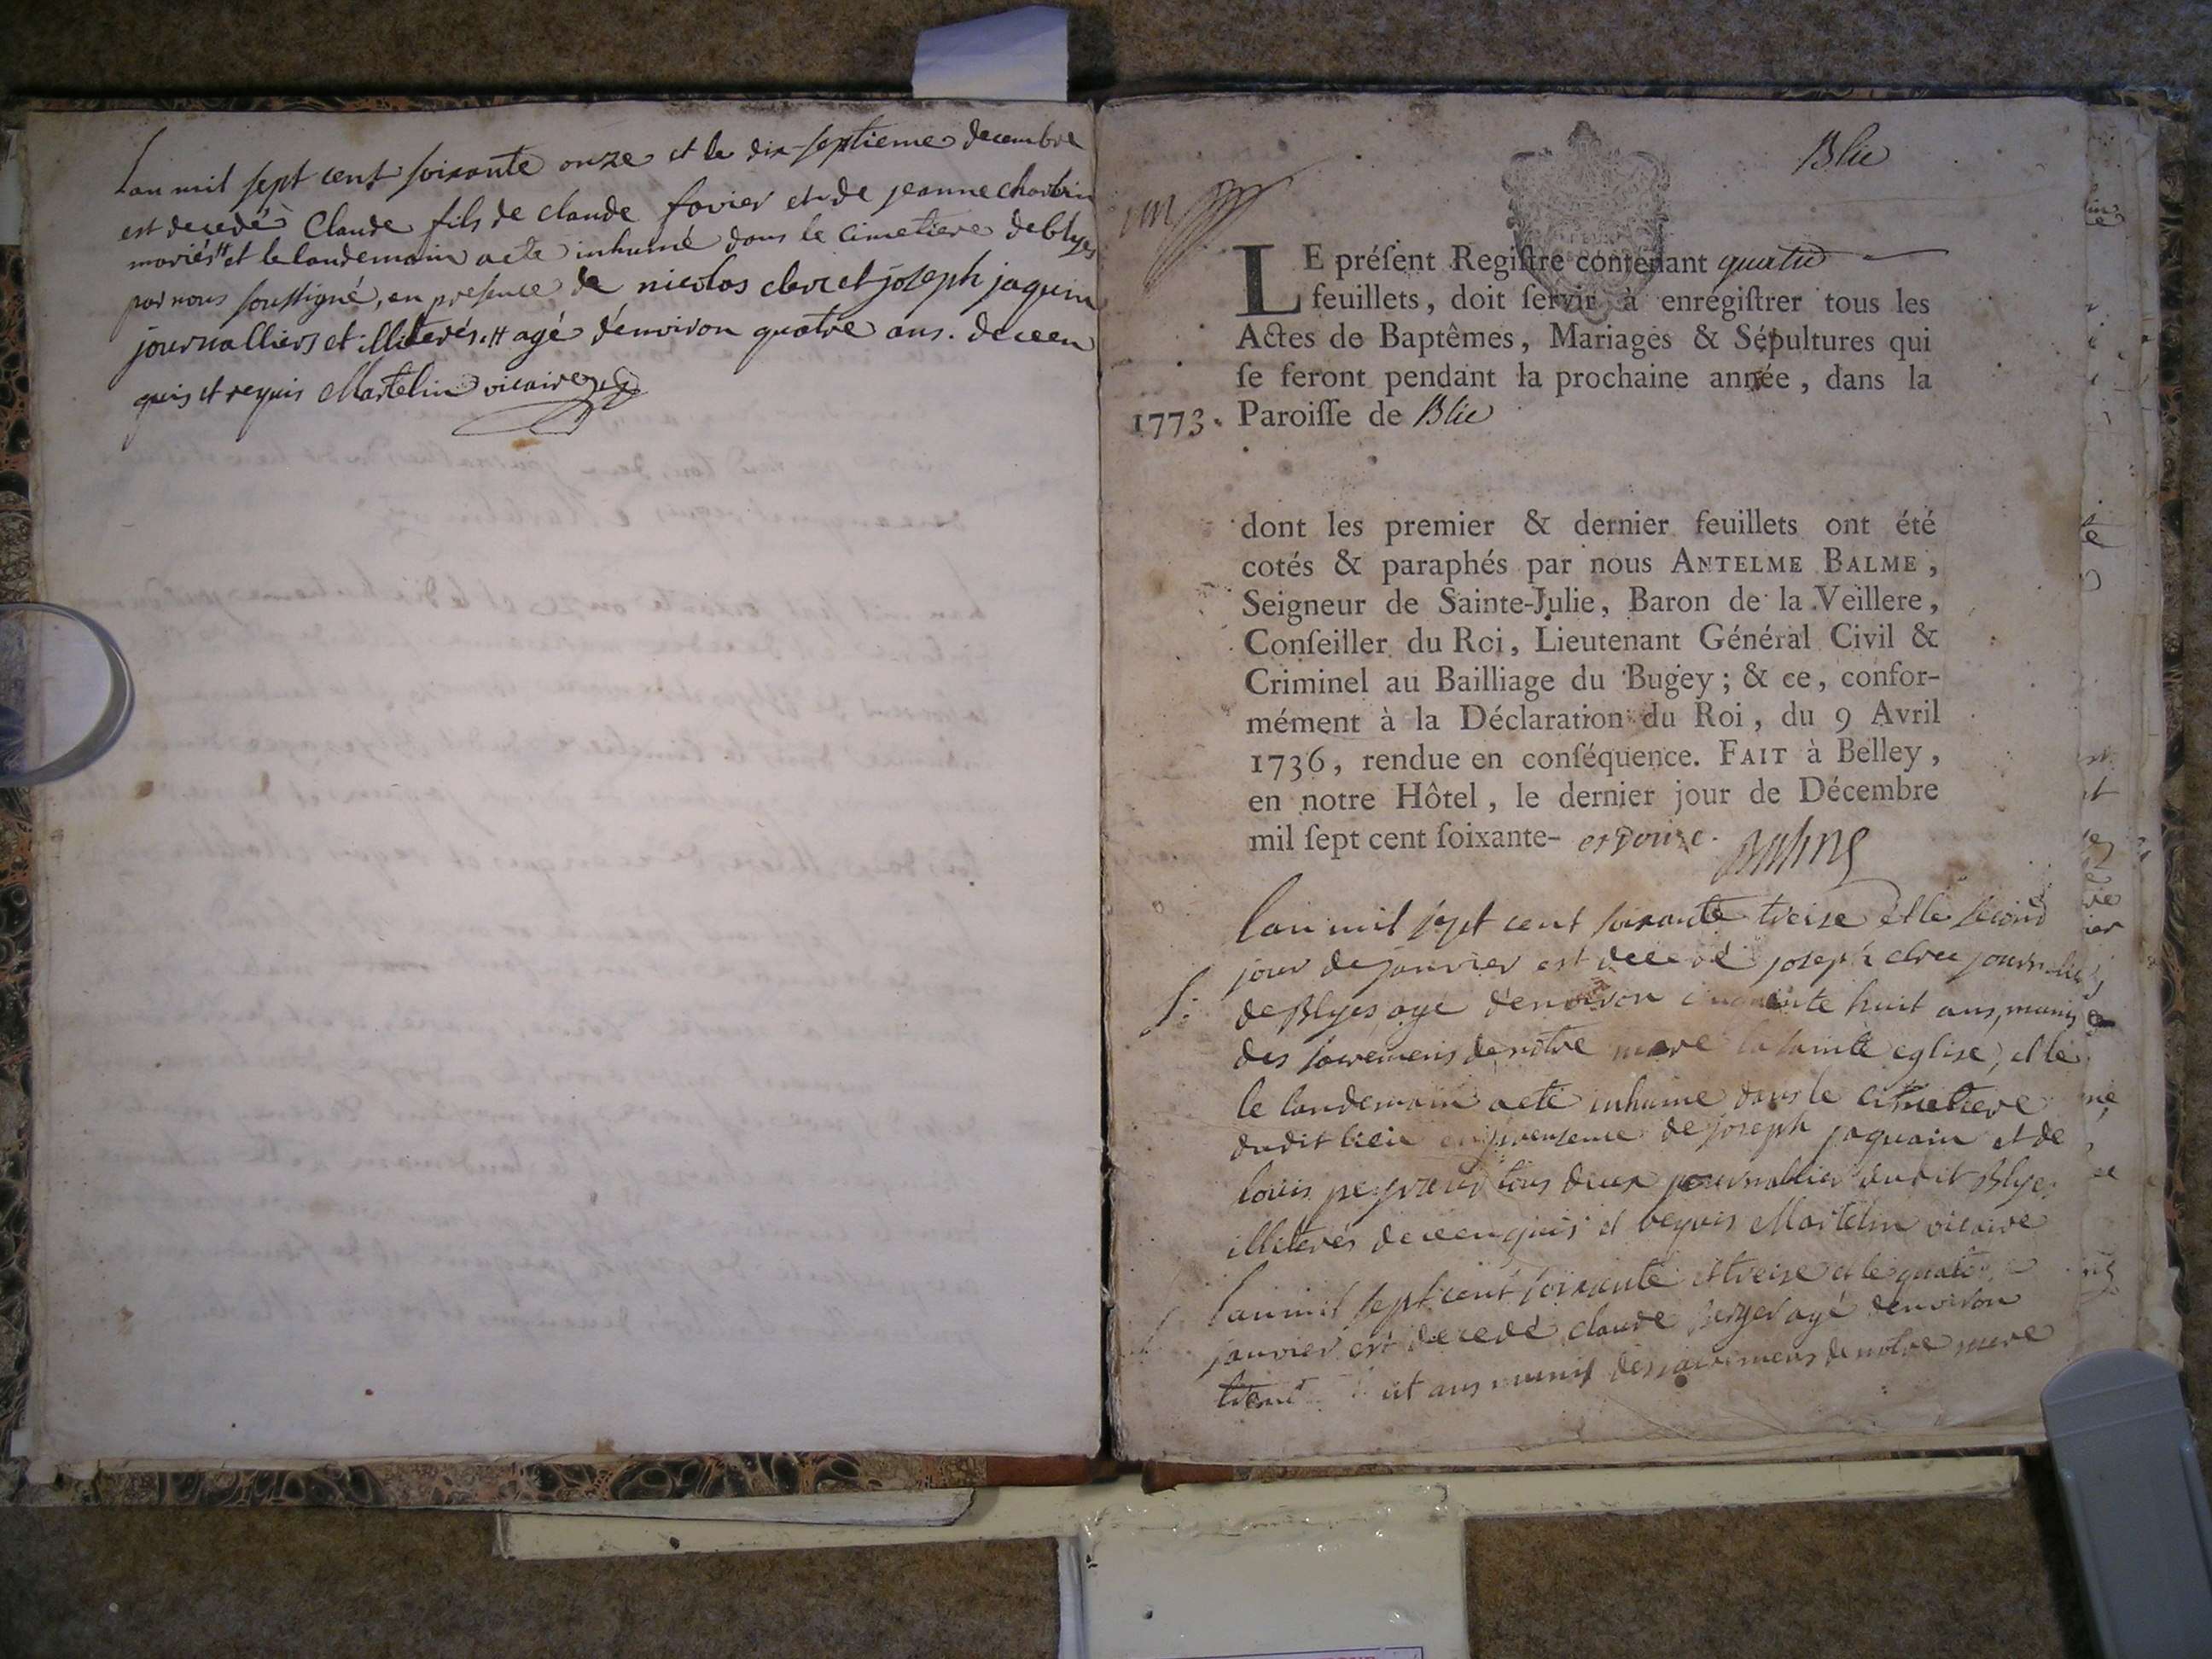 Lan mil sept cent soixante onze et le dix-septieme decembre
est decedé Claude fils de claude favier et de jeanne charbin
mariés # et le landemain aeté inhumé dans le cimetiere de blyes
par nous soussigné, en presence de nicolas clerc et joseph jaquin
journalliers et illiterés. # agé d'environ quatre ans. de ce en
quis et requis Martelin vicaire
Blie
LE préſent Regiſtre contenant quatre
feuillets, doit ſervir à enregiſtrer tous les
Actes de Baptêmes, Mariages & Sépultures qui
ſe feront pendant la prochaine année, dans la
1773. Paroiſſe de Blie
dont les premier & dernier feuillets ont été
cotés & paraphés par nous ANTELME BALME,
Seigneur de Sainte-Julie, Baron de la Veillere,
Conſeiller du Roi, Lieutenant Général Civil &
Criminel au Bailliage du Bugey; & ce, confor-
mément à la Déclaration du Roi, du 9 Avril
1736, rendue en conſéquence. FAIT à Belley,
en notre Hôtel, le dernier jour de Décembre
mil ſept cent ſoixante- et douze.
Lan mil sept cent soixante treise et le second
jour de janvier est decedé joseph clerc journalier
S: de Blyes agé d'environ cinquante huit ans, munis
des sacremens de notre mere la sainte eglise, et le
le landemain aeté inhumé dans le cimetiere
dudit lieu en presence de joseph jaquain et de
louis tous deux journallier dudit Blyes
illiterés de ce enquis et requis Martelin vicaire
Lan mil sept cent soixante et treise et le quatre
janvier est decedé claude Berger agé denviron
ans munis des sacremens de notre mere